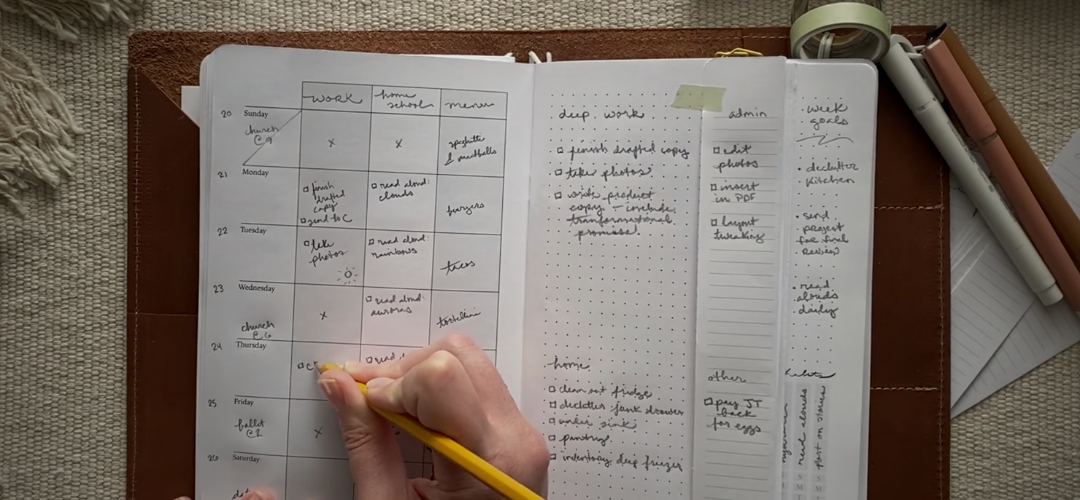 WORK
home school
menu
20 Sunday
church @ 9
x
x
spaghetti & meatballs
21 Monday
finish drafted copy
send to C
read aloud: clouds
burgers
22 Tuesday
take photos
read aloud: rainbows
tacos
23 Wednesday
church @ 6
x
read aloud: auroras
tortellini
24 Thursday
read
25 Friday
ballet @ 1
x
26 Saturday
deep work
finish drafted copy
take photos
write product
copy - include
transformational
promise.
home
clean out fridge
declutter junk drawer
under sink
pantry
inventory deep freezer
admin
edit
photos
insert
in PDF
layout
tweaking
other
pay JT
back
for eggs
week
goals
declutter
kitchen
send
project
for final
review
read
alouds
daily
habits
read alouds
post on stories